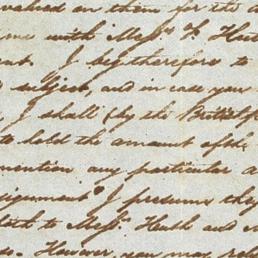 valued on them for the
me with Messrs. F. Huth
ent. I beg therefore to
subject, and in case you
I shall (by the British
to hold the amount of the
mention any particular
signment I presume they
to Messrs. Heath and
However, you may rely